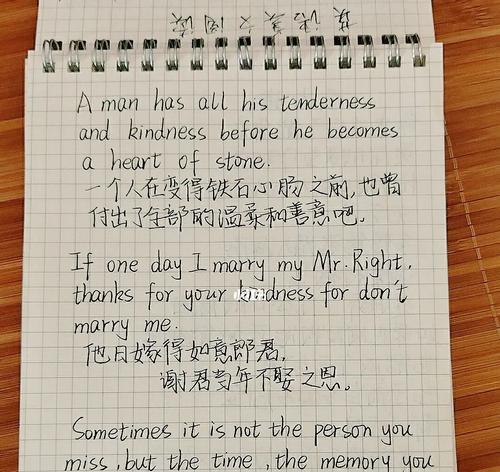 英语美文阅读
A man has all his tenderness
and kindness before he becomes
a heart of stone.
一个人在变得铁石心肠之前,也曾
付出了全部的温柔和善意吧。
If one day I marry my Mr. Right,
thanks for your kindness for don't
marry me.
他日嫁得如意郎君,
谢君当年不娶之恩。
Sometimes it is not the person you
miss, but the time, the memory you